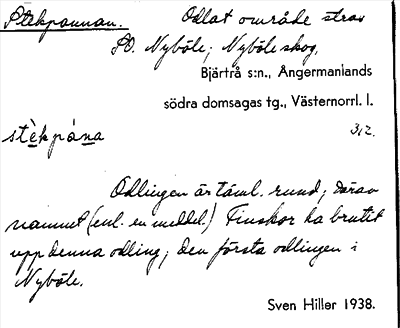 Stekpannan. Odlat område strax
SO. Nyböle; Nyböle skog,
Bjärtrå s:n., Ångermanlands
södra domsagas tg., Västernorrl. l.
312.
stèkpána
Odlingen är täml. rund; därav
namnet (enl. en meddel.) Finskor ha brutit
upp denna odling; den första odlingen i
Nyböle.
Sven Hiller 1938.